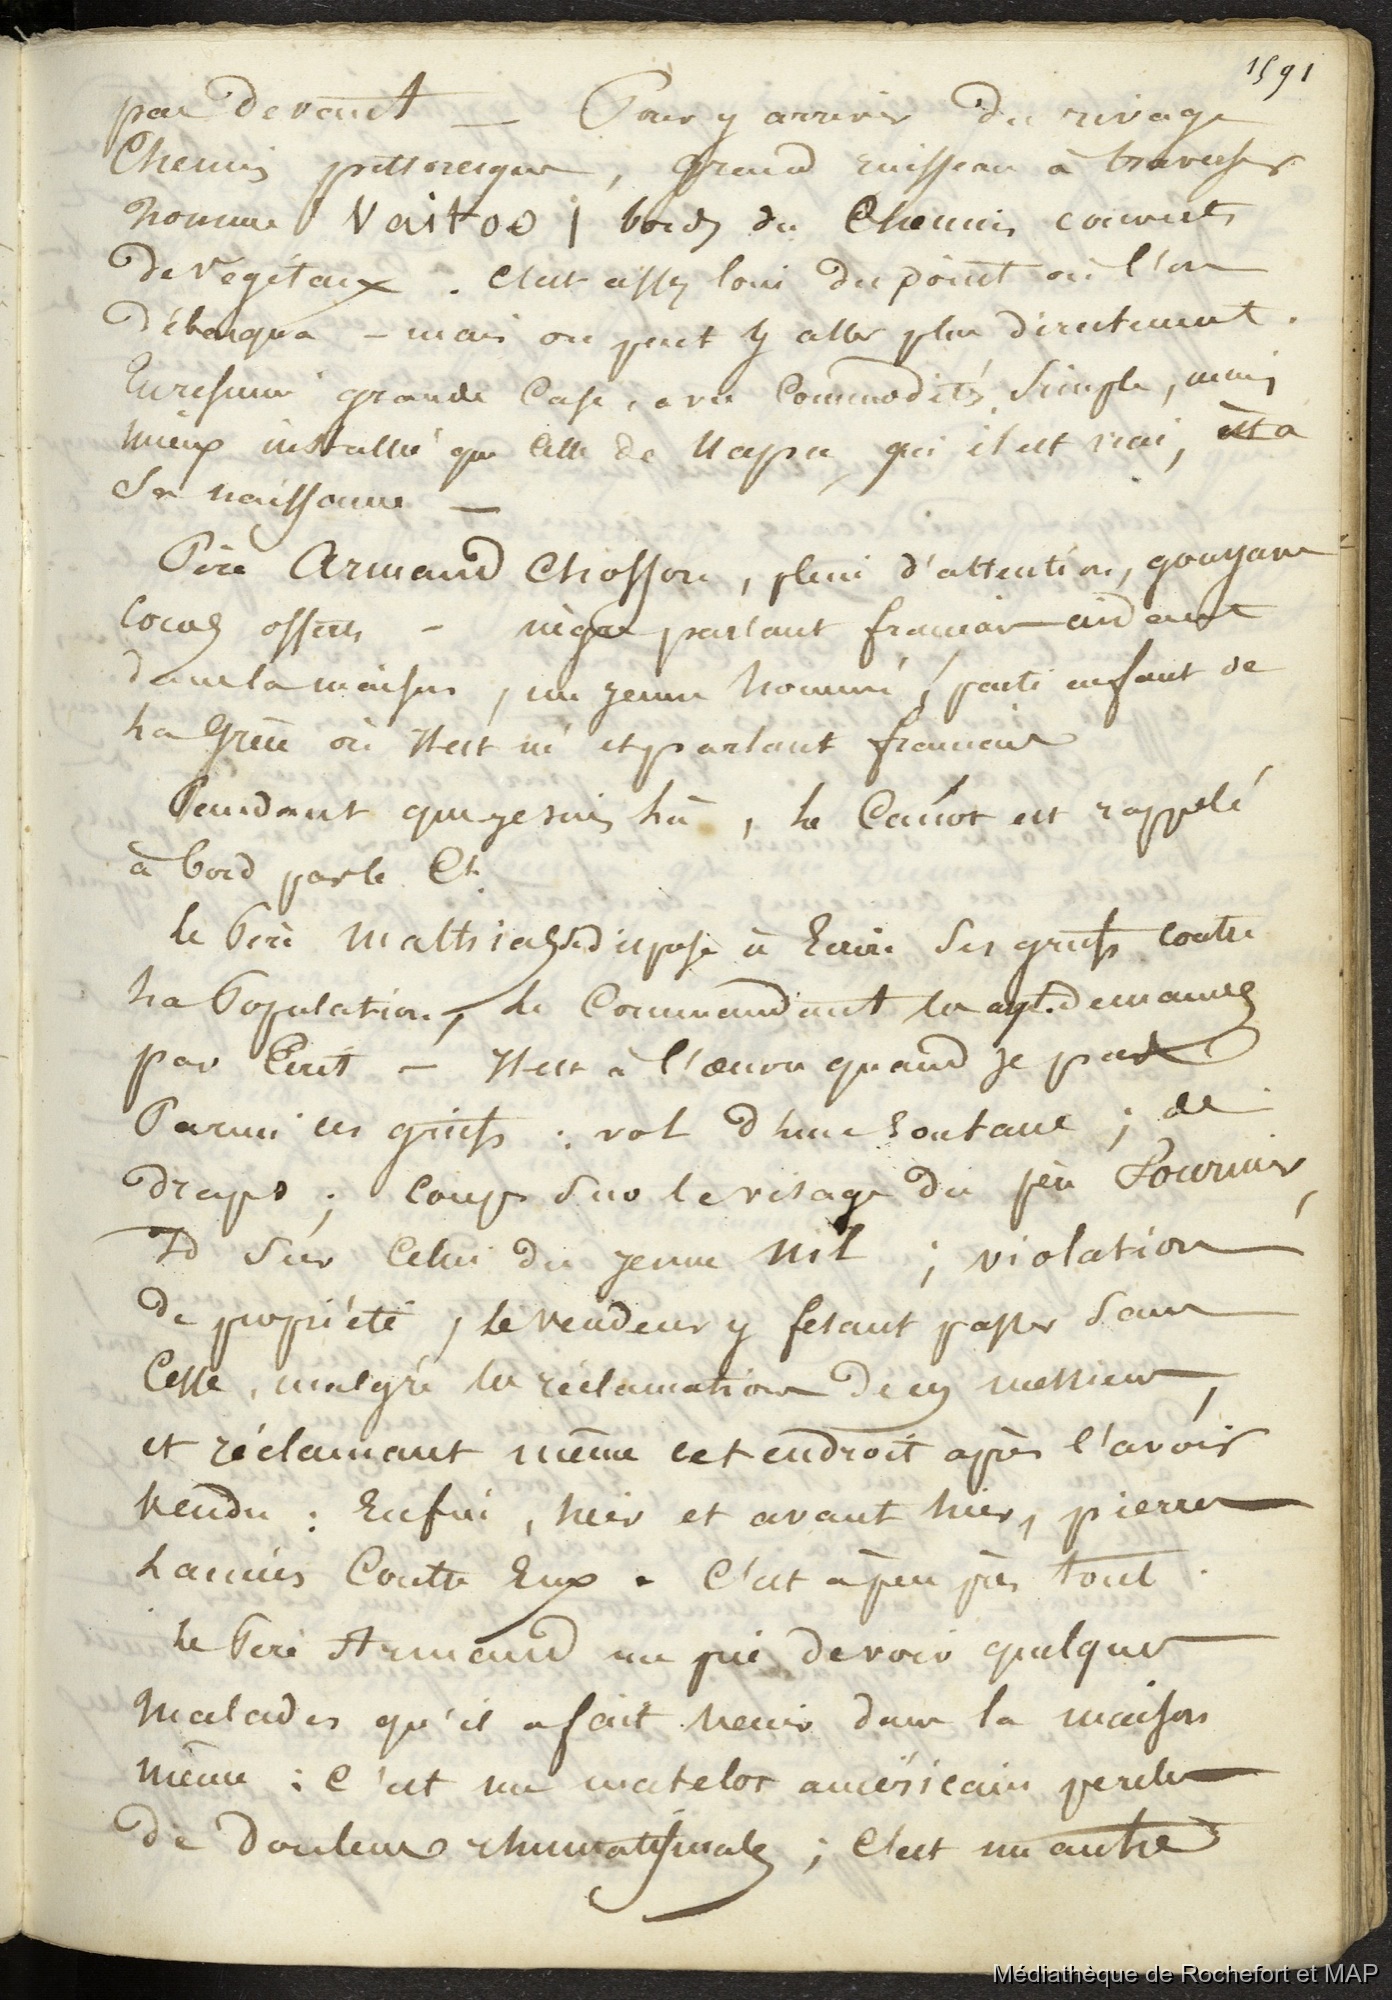 1591
par devant — Pour y arriver du rivage
Chemin pittoresque, grand ruisseau à traverser
nommé Vaitoo ; bords du Chemin couverts
de végétaux. C'est assez loin du point où l'on
débarqua – mais on peut y aller plus directement.
En résumé grande Case, avec Commodités, Simple, mais
mieux installée que Celle de Uapu, qui il est vrai, est a
Sa naissance —
Père Armand Chosson, plein d'attention, gouyave
Cocos offerts – nègre parlant francais aidant
dans la maison, un jeune homme, parti enfant de
La Grèce où il est né et parlant francais
Pendant que je suis Là, le Canot est rappelé
à bord par le Ct
le Père Mathias se dispose à Ecrire Ses griefs contre
La Population, le Commandant les ayt. demandés
par Ecrit – Il est à l'œuvre quand je pars
Parmi ces griefs : vol d'une Soutane ; de
draps ; Coups Sur le visage du père Fournier,
Id Sur Celui du jeune Nil ; violation
de propriété, le vendeur y fesant passer Sans
Cesse, malgré les réclamations de ces messieurs,
et réclamant même cet endroit après l'avoir
Vendu : Enfin, hier et avant hier, pierres
Lancées Contre Eux. C'est àpeu près tout.
Le Père Armand me prie de voir quelques
Malades qu'il a fait Venir dans la maison
même : C'est un matelot américain perclus
de Douleurs rhumatismales ; C'est un autre
Médiathèque de Rochefort et MAP